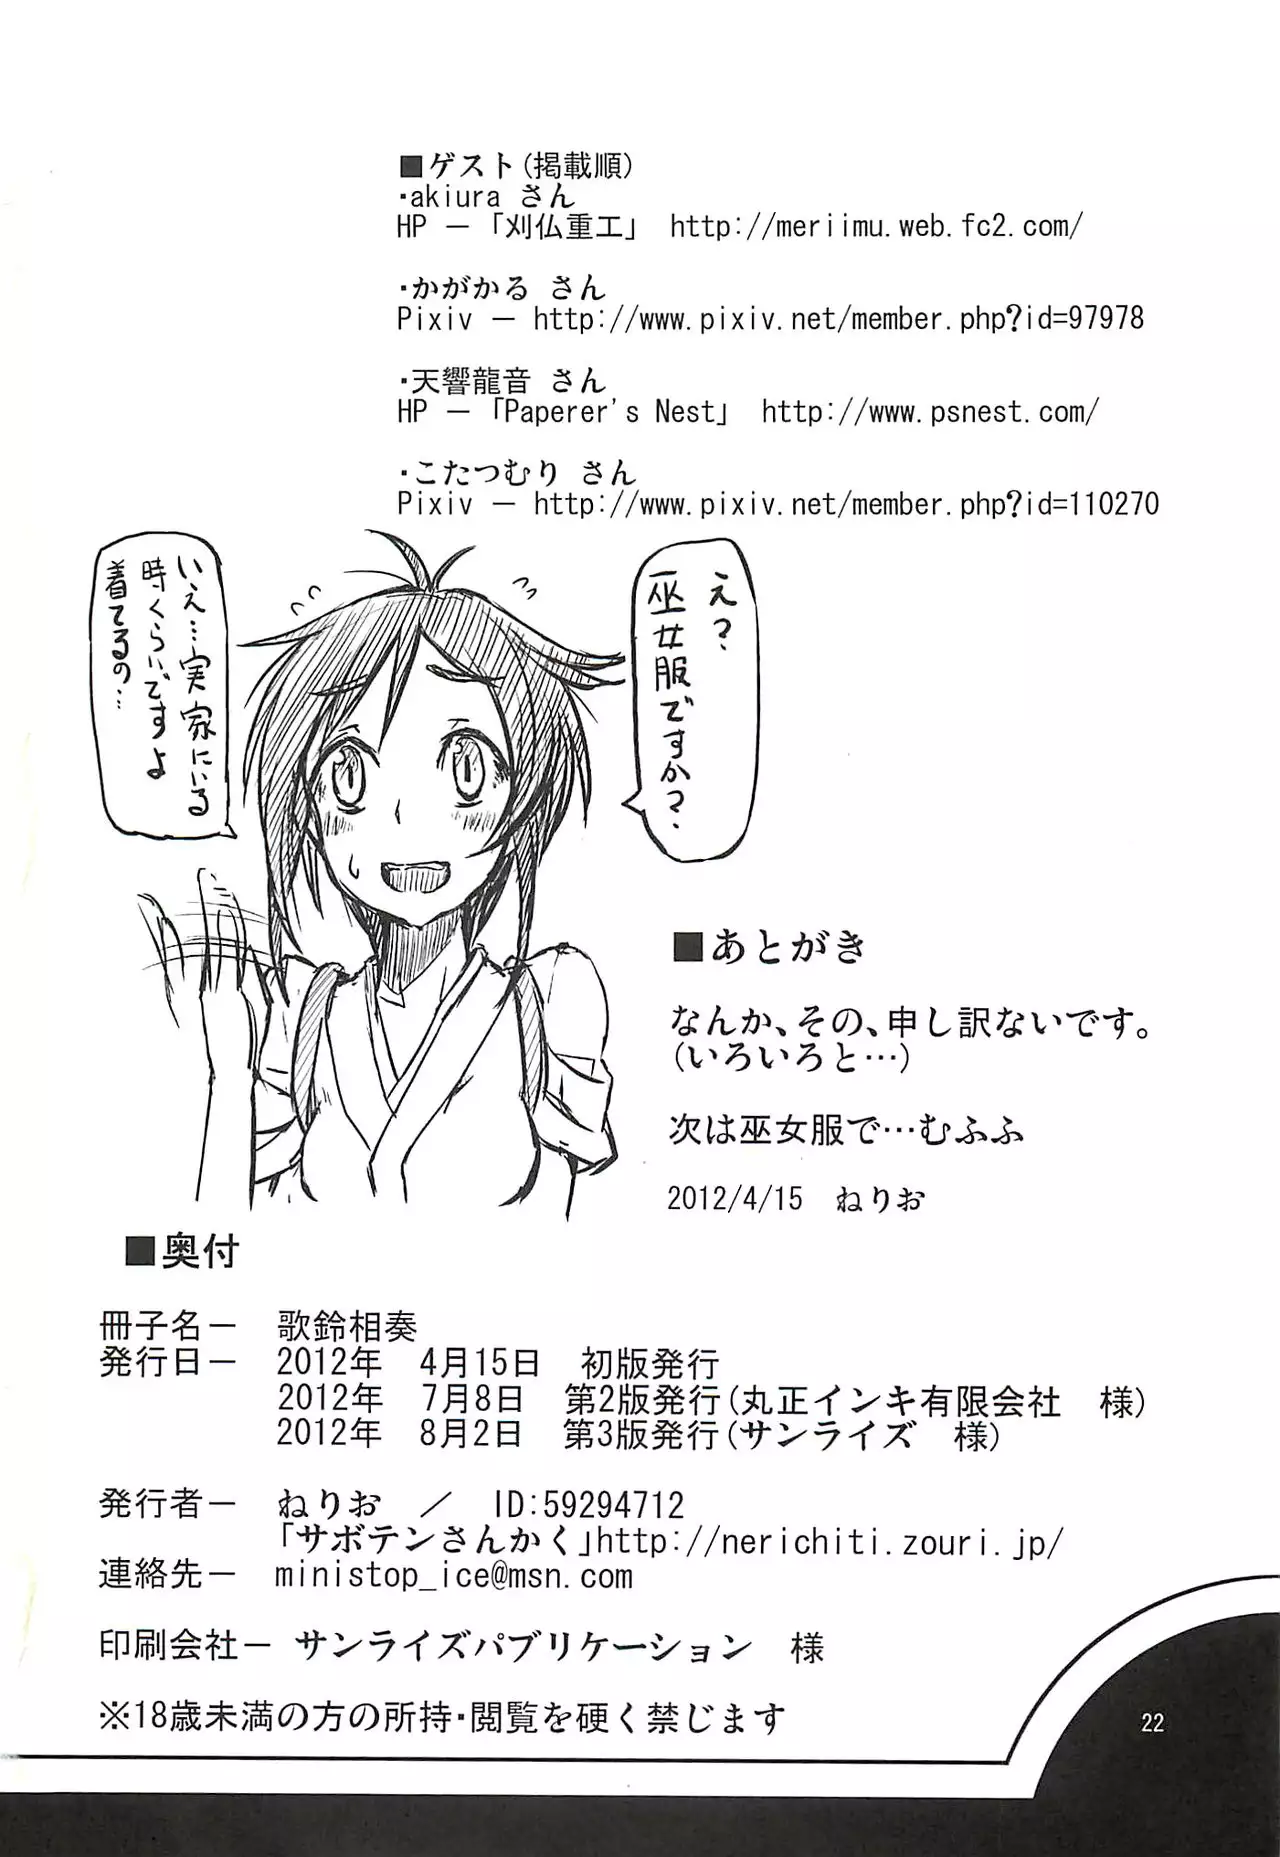 ■ゲスト(掲載順)
・akiura さん
HP － 「刈仏重工」 http://meriimu.web.fc2.com/
・かがかる さん
Pixiv － http://www.pixiv.net/member.php?id=97978
・天響龍音 さん
HP － 「Paperer's Nest」 http://www.psnest.com/
・こたつむり さん
Pixiv － http://www.pixiv.net/member.php?id=110270
え?
巫女服ですか?
いえ…実家にいる
時くらいですよ
着てるの…
■あとがき
なんか、その、申し訳ないです。
(いろいろと…)
次は巫女服で…むふふ
2012/4/15 ねりお
■奥付
冊子名－ 歌鈴相奏
発行日－ 2012年 4月15日 初版発行
2012年 7月8日 第2版発行(丸正インキ有限会社 様)
2012年 8月2日 第3版発行(サンライズ 様)
発行者－ ねりお ／ ID:59294712
「サボテンさんかく」http://nerichiti.zouri.jp/
連絡先－ ministop_ice@msn.com
印刷会社－ サンライズパブリケーション 様
※18歳未満の方の所持・閲覧を硬く禁じます
22